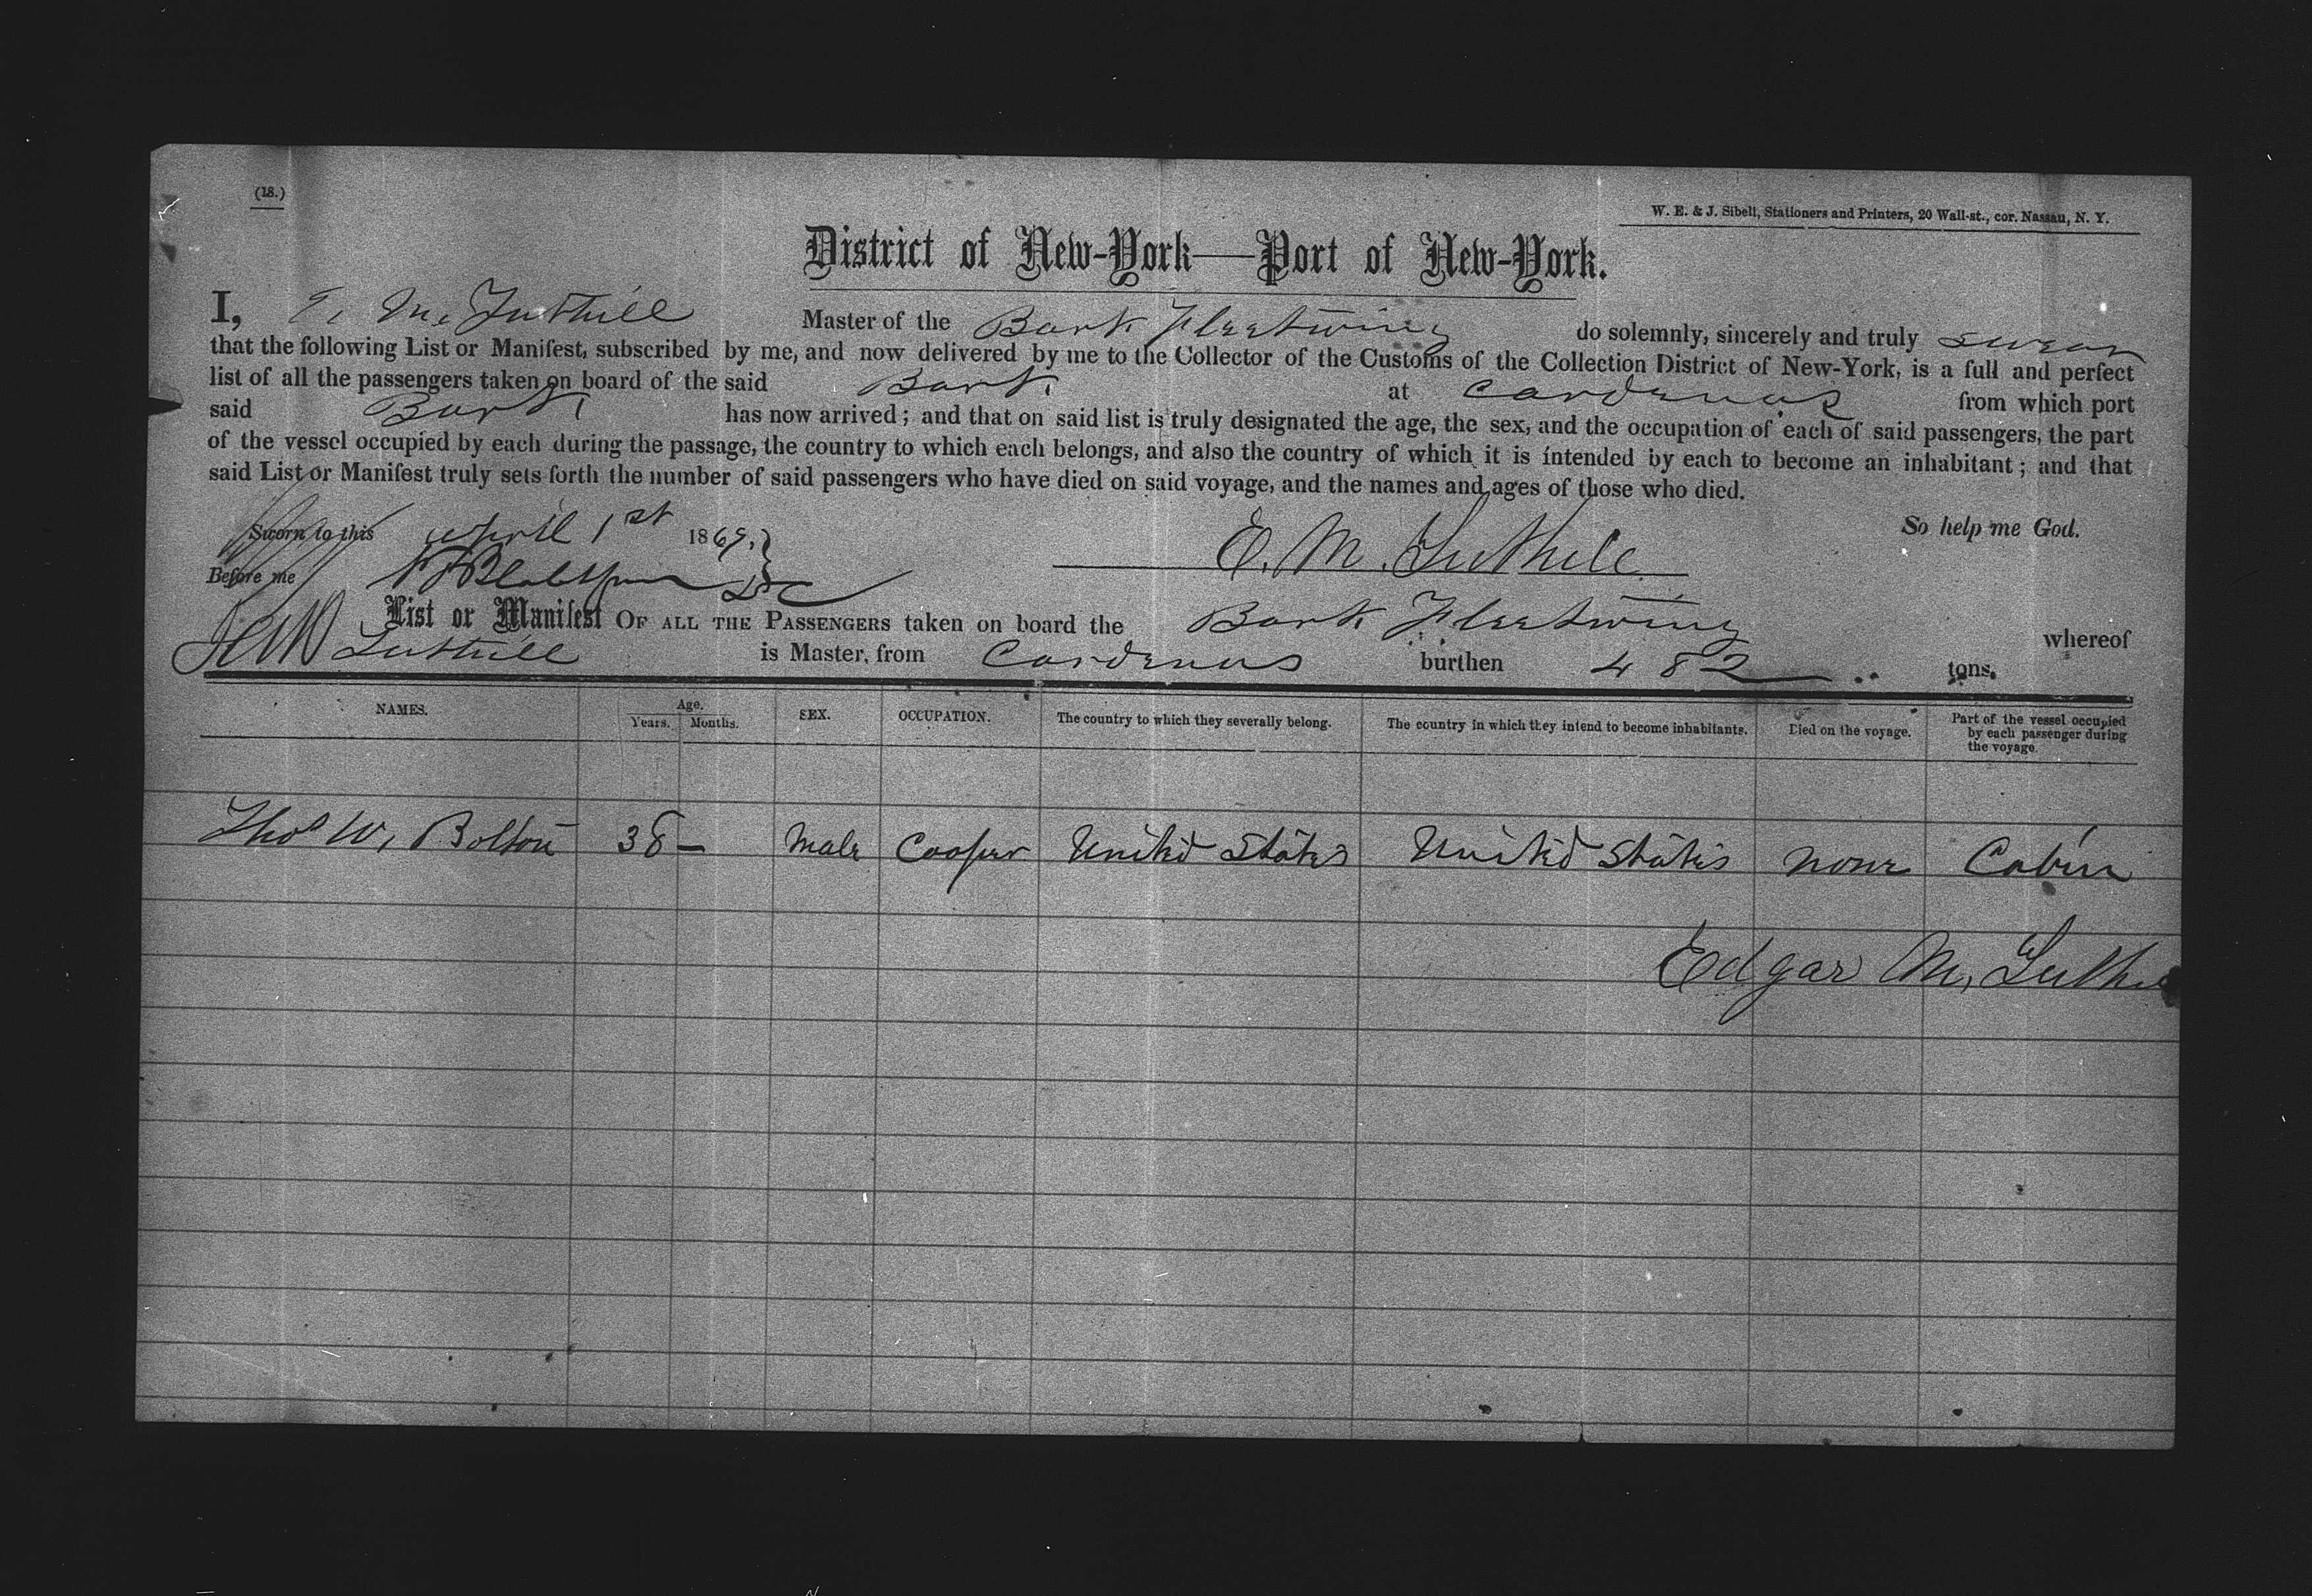 (18.)
W. E. & J. Sibell, Stationers and Printers, 20 Wall-st., cor. Nassau, N. Y.
District of New-York—Port of New-York.
I, E. M. Tuthill Master of the Bark Fleetwing do solemnly, sincerely and truly swear
that the following List or Manifest, subscribed by me, and now delivered by me to the Collector of the Customs of the Collection District of New-York, is a full and perfect
list of all the passengers taken on board of the said Bark at Cardenas from which port
said Bark has now arrived; and that on said list is truly designated the age, the sex, and the occupation of each of said passengers, the part
of the vessel occupied by each during the passage, the country to which each belongs, and also the country of which it is intended by each to become an inhabitant; and that
said List or Manifest truly sets forth the number of said passengers who have died on said voyage, and the names and ages of those who died.
Sworn to this April 1st 1869. So help me God.
Before me E. M. Tuthill
List or Manifest OF ALL THE PASSENGERS taken on board the Bark Fleetwing whereof
Tuthill is Master, from Cardenas burthen 482 tons.
NAMES. Age. Years. Months. SEX. OCCUPATION. The country to which they severally belong. The country in which they intend to become inhabitants. Died on the voyage. Part of the vessel occupied by each passenger during the voyage.
Thos W. Bolton 38 — Male Cooper United States United States none Cabin
Edgar M. Tuthill